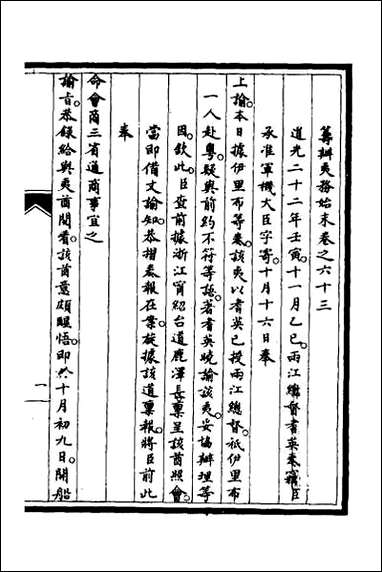 籌辦夷務始末卷之六十三
道光二十二年壬寅十一月乙巳。兩江總督耆英奏。竊臣
承准軍機大臣字寄。十月十六日奉
上諭。本日據伊里布等奏。該夷以耆英已授兩江總督。祇伊里布
一人赴粵。疑與前約不符等語。著耆英曉諭該夷。妥協辦理等
因。欽此。臣查前據浙江甯紹台道鹿澤長稟呈該酋照會。
當即備文諭知。恭摺奏報在案。旋據該道稟報。將臣前此
奉
命會商三省通商事宜之
諭旨。恭錄給與夷酋閱看。該酋意頗曉悟。即於十月初九日。開船
一